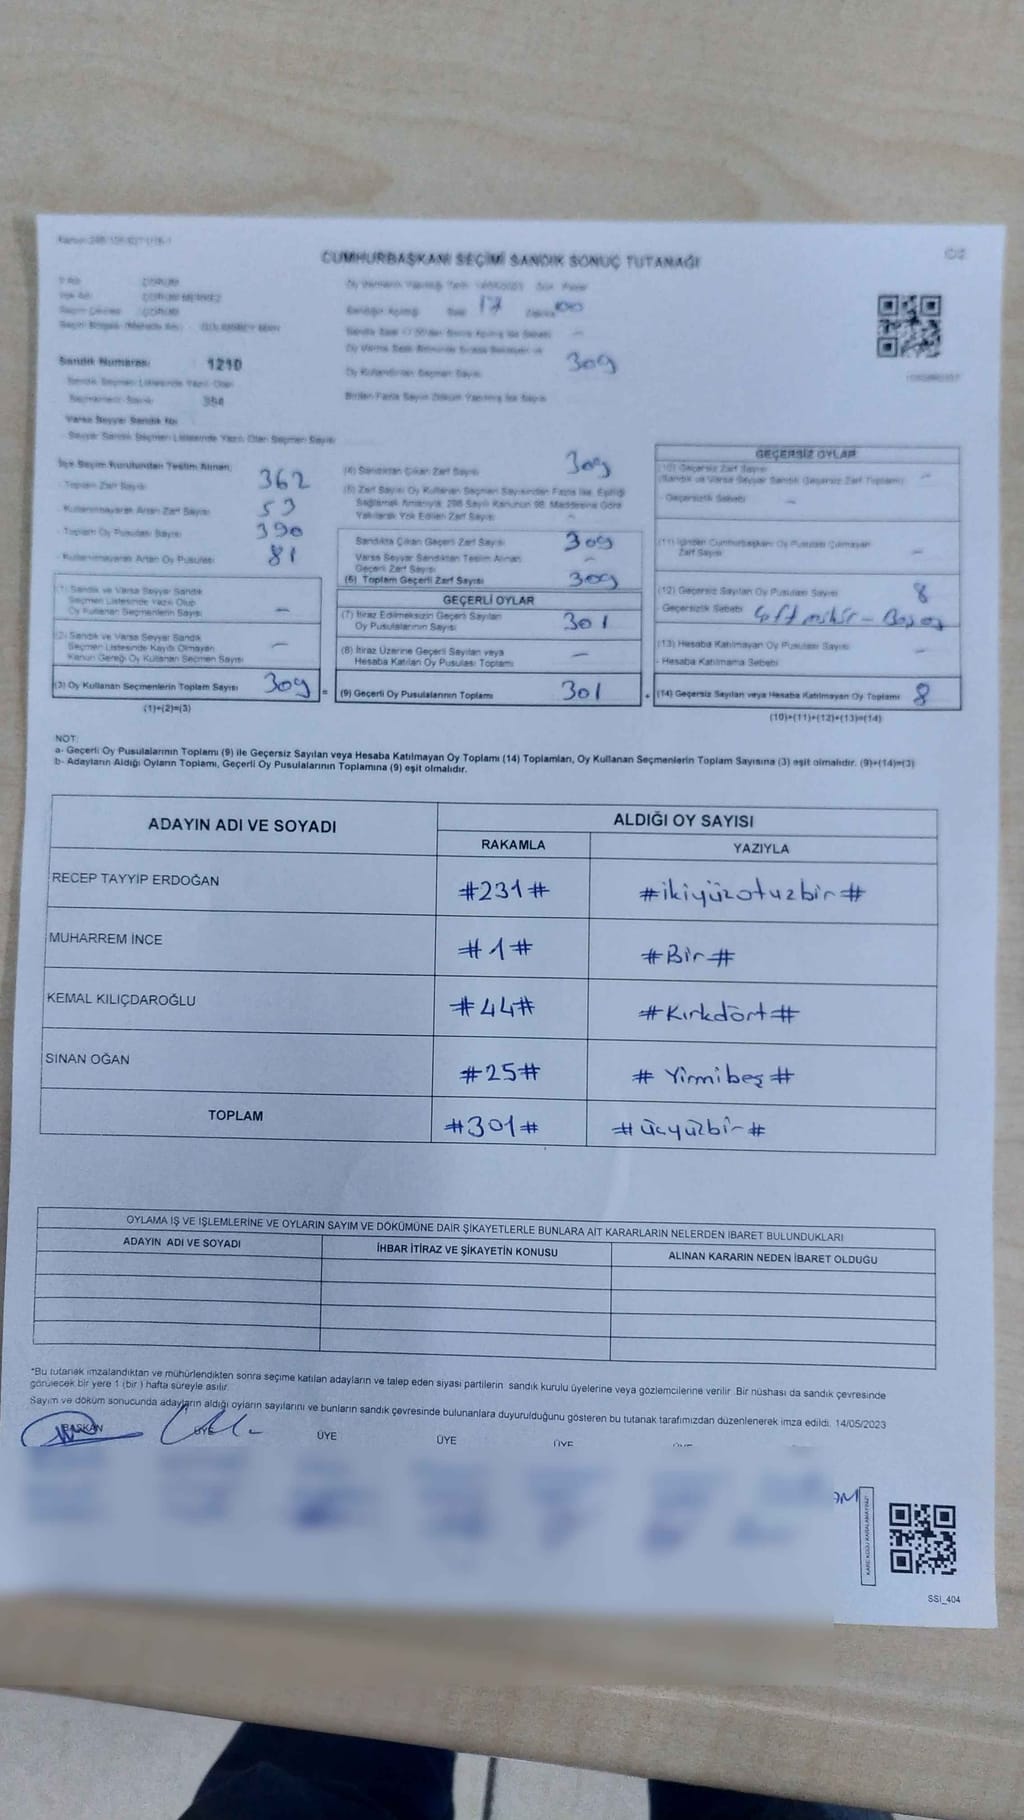 CUMHURBAŞKANI SEÇİMİ SANDIK SONUÇ TUTANAĞI
Sandık Numarası: 1210
17
309
İlçe Seçim Kurulundan Teslim Alınan;
- Toplam Zarf Sayısı 362
- Kullanılmayarak Artan Zarf Sayısı 53
- Toplam Oy Pusulası Sayısı 390
- Kullanılmayarak Artan Oy Pusulası 81
(1) Sandık ve Varsa Seyyar Sandık
Seçmen Listesinde Yazılı Olup
Oy Kullanan Seçmenlerin Sayısı –
(2) Sandık ve Varsa Seyyar Sandık
Seçmen Listesinde Kayıtlı Olmayan
Kanun Gereği Oy Kullanan Seçmen Sayısı –
(3) Oy Kullanan Seçmenlerin Toplam Sayısı 309 =
(1)+(2)=(3)
(4) Sandıktan Çıkan Zarf Sayısı 309
(5) Zarf Sayısı Oy Kullanan Seçmen Sayısından Fazla İse, Eşitliği
Sağlamak Amacıyla, 298 Sayılı Kanunun 98. Maddesine Göre
Yakılarak Yok Edilen Zarf Sayısı –
Sandıkta Çıkan Geçerli Zarf Sayısı 309
Varsa Seyyar Sandıktan Teslim Alınan
Geçerli Zarf Sayısı –
(6) Toplam Geçerli Zarf Sayısı 309
GEÇERLİ OYLAR
(7) İtiraz Edilmeksizin Geçerli Sayılan
Oy Pusulalarının Sayısı 301
(8) İtiraz Üzerine Geçerli Sayılan veya
Hesaba Katılan Oy Pusulası Toplamı –
(9) Geçerli Oy Pusulalarının Toplamı 301 +
GEÇERSİZ OYLAR
(10) Geçersiz Zarf Sayısı
(Sandık ve Varsa Seyyar Sandık Geçersiz Zarf Toplamı) –
- Geçersizlik Sebebi –
(11) İçinden Cumhurbaşkanı Oy Pusulası Çıkmayan
Zarf Sayısı –
(12) Geçersiz Sayılan Oy Pusulası Sayısı 8
- Geçersizlik Sebebi
(13) Hesaba Katılmayan Oy Pusulası Sayısı –
- Hesaba Katılmama Sebebi
(14) Geçersiz Sayılan veya Hesaba Katılmayan Oy Toplamı 8
(10)+(11)+(12)+(13)=(14)
NOT:
a- Geçerli Oy Pusulalarının Toplamı (9) ile Geçersiz Sayılan veya Hesaba Katılmayan Oy Toplamı (14) Toplamları, Oy Kullanan Seçmenlerin Toplam Sayısına (3) eşit olmalıdır. (9)+(14)=(3)
b- Adayların Aldığı Oyların Toplamı, Geçerli Oy Pusulalarının Toplamına (9) eşit olmalıdır.
ADAYIN ADI VE SOYADI
ALDIĞI OY SAYISI
RAKAMLA YAZIYLA
RECEP TAYYİP ERDOĞAN #231# #ikiyüzotuzbir#
MUHARREM İNCE #1# #Bir#
KEMAL KILIÇDAROĞLU #44# #Kırkdört#
SİNAN OĞAN #25# #Yirmibeş#
TOPLAM #301# #üçyüzbir#
OYLAMA İŞ VE İŞLEMLERİNE VE OYLARIN SAYIM VE DÖKÜMÜNE DAİR ŞİKAYETLERLE BUNLARA AİT KARARLARIN NELERDEN İBARET BULUNDUKLARI
ADAYIN ADI VE SOYADI İHBAR İTİRAZ VE ŞİKAYETİN KONUSU ALINAN KARARIN NEDEN İBARET OLDUĞU
*Bu tutanak imzalandıktan ve mühürlendikten sonra seçime katılan adayların ve talep eden siyasi partilerin sandık kurulu üyelerine veya gözlemcilerine verilir. Bir nüshası da sandık çevresinde
görülecek bir yere 1 (bir) hafta süreyle asılır.
Sayım ve döküm sonucunda adayların aldığı oyların sayılarını ve bunların sandık çevresinde bulunanlara duyurulduğunu gösteren bu tutanak tarafımızdan düzenlenerek imza edildi. 14/05/2023
BAŞKAN ÜYE ÜYE ÜYE ÜYE
SSI_404